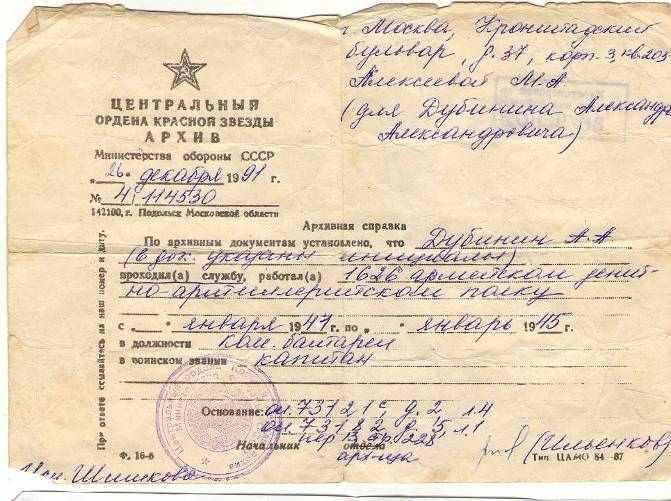 г. Москва, Кронштадский
бульвар, д. 37, корп. 3, кв. 203
Алексеевой М.А.
(для Дубинина Александра
Александровича)
ЦЕНТРАЛЬНЫЙ
ОРДЕНА КРАСНОЙ ЗВЕЗДЫ
АРХИВ
Министерства обороны СССР
„26" декабря 1991 г.
№ 4/114530
142100, г. Подольск Московской области
При ответе ссылайтесь на наш номер и дату.
Архивная справка
По архивным документам установлено, что Дубинин А.А.
(в док. указаны инициалы)
проходил(а) службу, работал(а) 1626 армейском зенит-
но артиллерийском полку
с „ " января 1941 г. по „ " январь 1945 г.
в должности ком. батареи
в воинском звании капитан
Основание: оп. 73121с, д. 2, л. 4
оп. 73182 д. 5, л. 1
Начальник отдела
арх-ща
(Ильенков)
Ф. 16-б
Тип. ЦАМО 84 -87
Исп. Шишкова